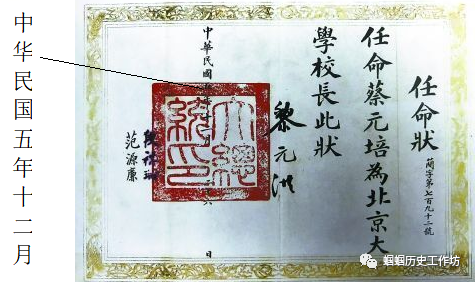 任命狀
簡字第七百九十二號
任命蔡元培為北京大
學校長此狀
黎元洪
大總
統印
中華民國 六 日
段祺瑞
范源廉
中华民国五年十二月
蝈蝈历史工作坊